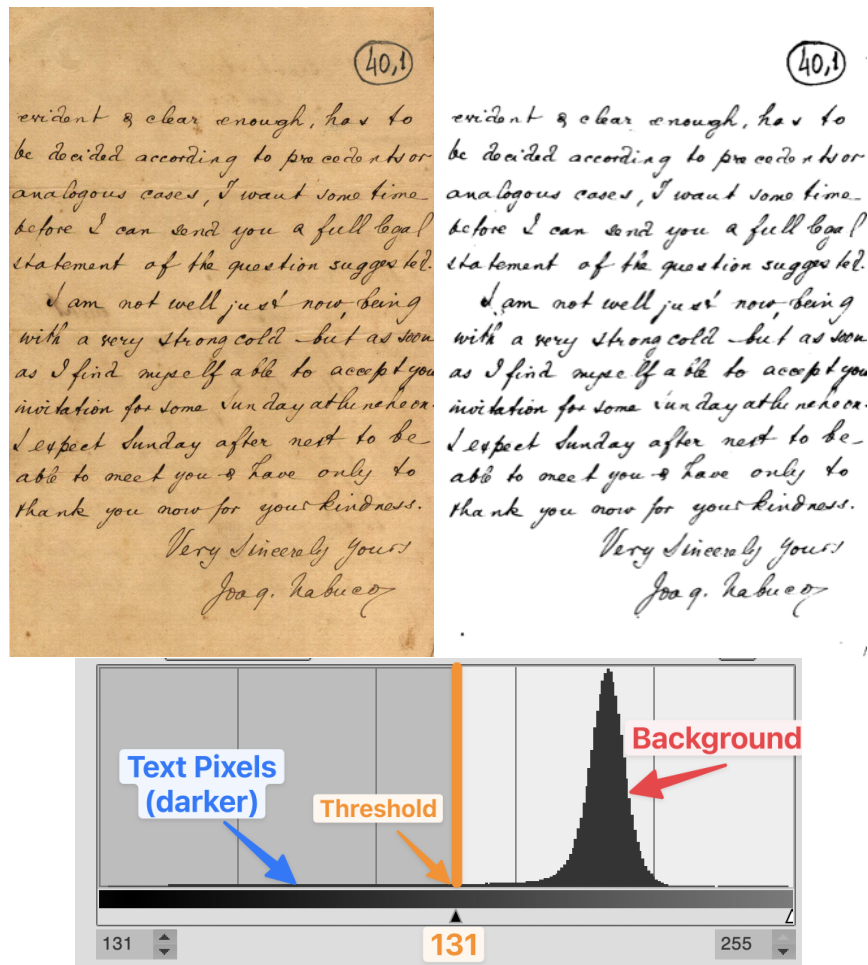 40,1
evident & clear enough, has to
be decided according to precedents or
analogous cases, I want some time
before I can send you a full legal
statement of the question suggested.
I am not well just now, being
with a very strong cold - but as soon
as I find myself able to accept you
invitation for some Sunday at luncheon.
I expect Sunday after next to be
able to meet you & have only to
thank you now for your kindness.
Very Sincerely Yours
Joaq. Nabuco
40,1
evident & clear enough, has to
be decided according to precedents or
analogous cases, I want some time
before I can send you a full legal
statement of the question suggested.
I am not well just now, being
with a very strong cold - but as soon
as I find myself able to accept you
invitation for some Sunday at luncheon.
I expect Sunday after next to be
able to meet you & have only to
thank you now for your kindness.
Very Sincerely Yours
Joaq. Nabuco
Background
Text Pixels
(darker)
Threshold
131
131
255